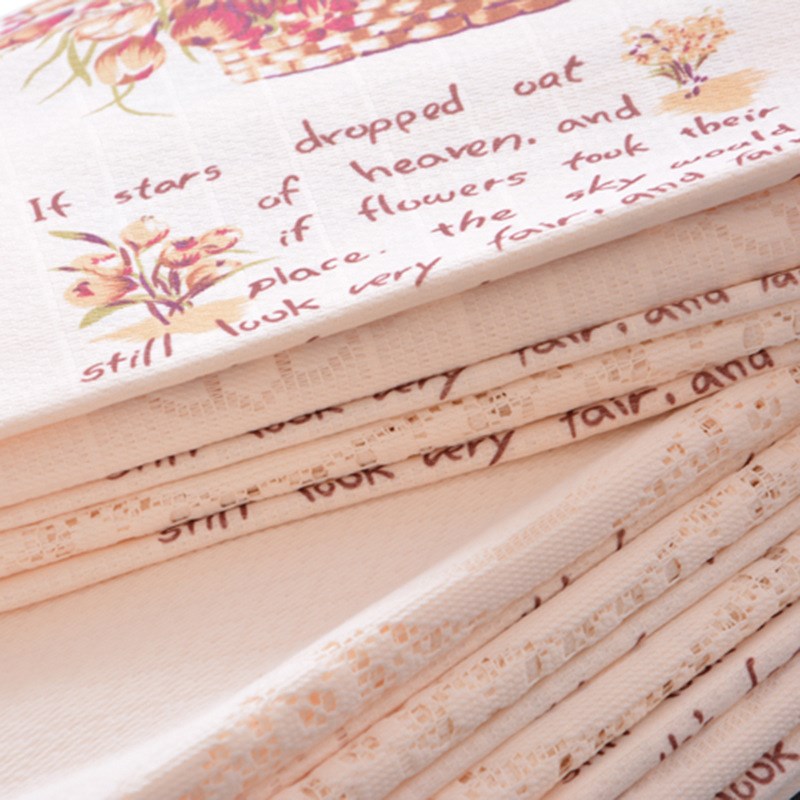 If stars dropped oat
of heaven. and
if flowers took their
place. the sky would
still look very fair, and fair
still look very fair, and
still look very fair, and
look